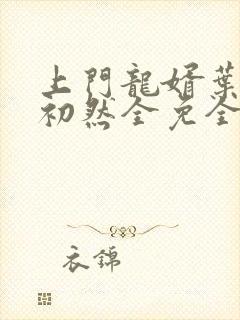 上門龍婿葉
初然全免全
衣錦